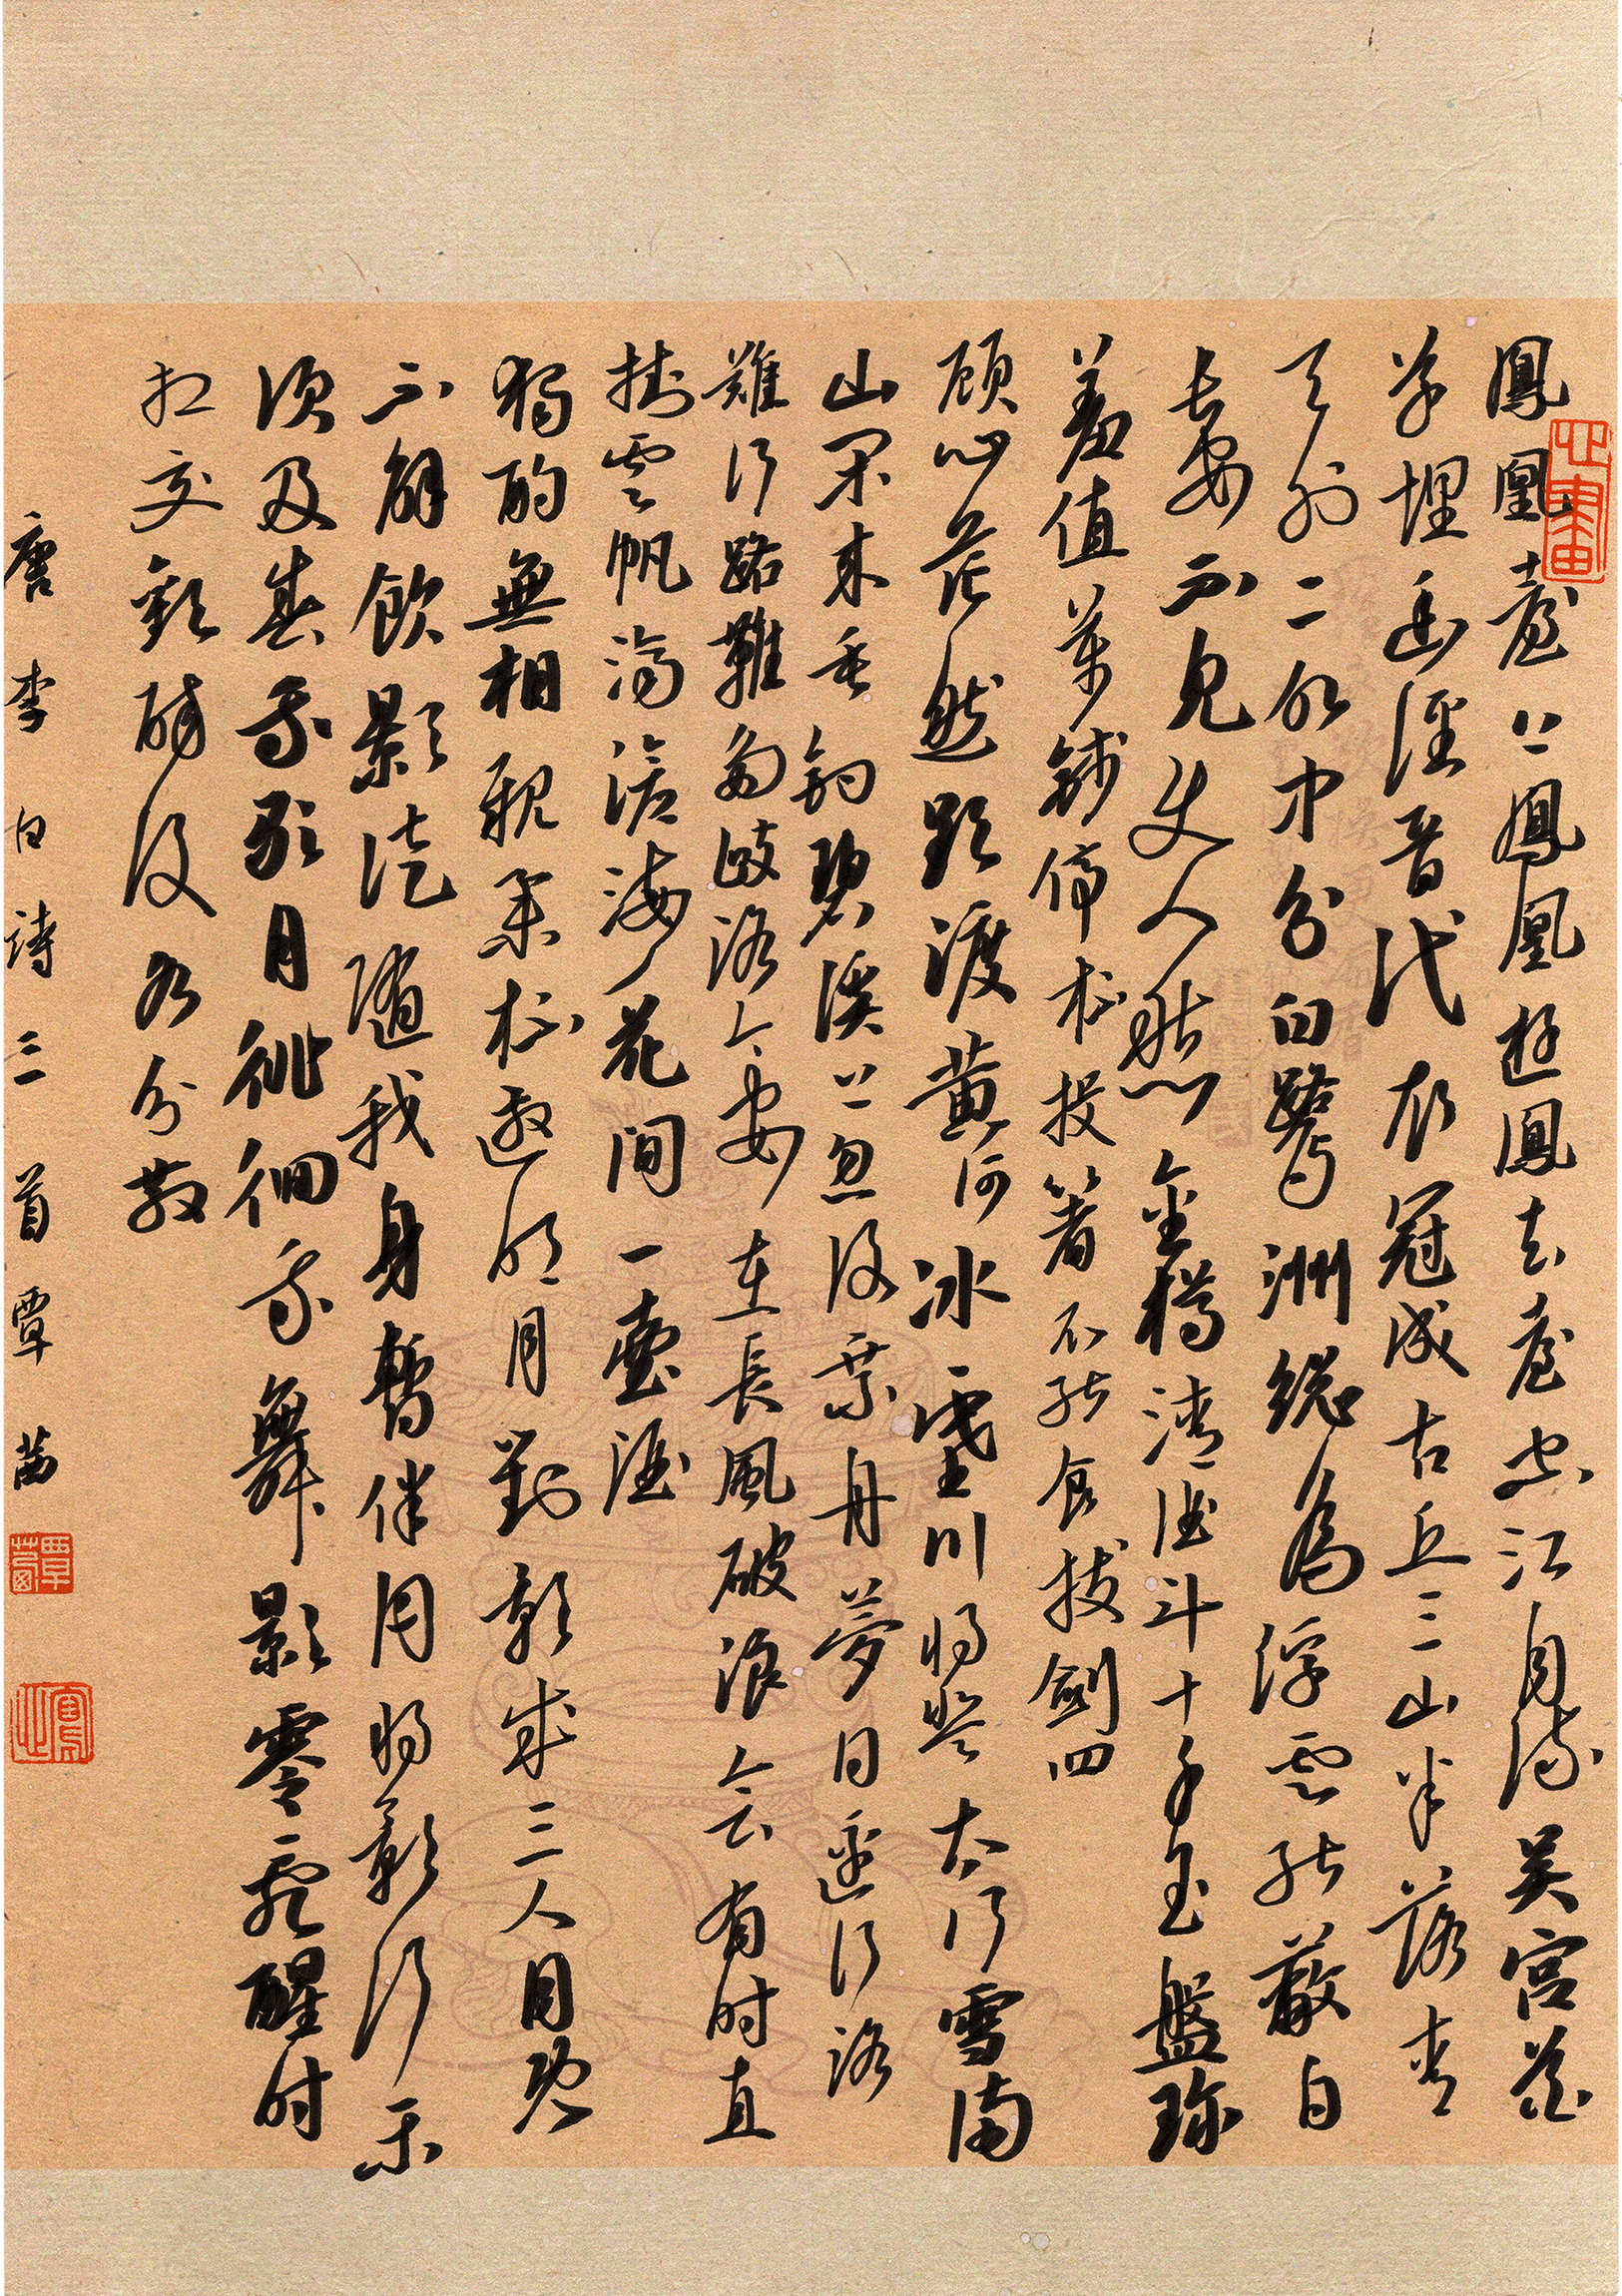 鳳凰臺上鳳凰遊鳳去臺空江自流吳宮花
草埋幽徑晉代衣冠成古丘三山半落青
天外二水中分白鷺洲總為浮雲能蔽日
長安不見使人愁金樽清酒斗十千玉盤珍
羞值萬錢停杯投箸不能食拔劍四
顧心茫然欲渡黃河冰塞川將登太行雪滿
山閑來垂釣碧溪上忽復乘舟夢日邊行路
難行路難多歧路今安在長風破浪會有時直
掛雲帆濟滄海花間一壺酒
獨酌無相親舉杯邀明月對影成三人月既
不解飲影徒隨我身暫伴月將影行樂
須及春我歌月徘徊我舞影零亂醒時
相交歡醉後各分散
唐李白詩三首覃茜